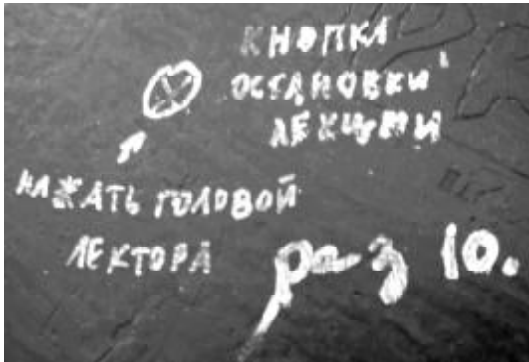 КНОПКА
ОСТАНОВКИ
ЛЕКЦИИ
НАЖАТЬ ГОЛОВОЙ
ЛЕКТОРА
раз 10.